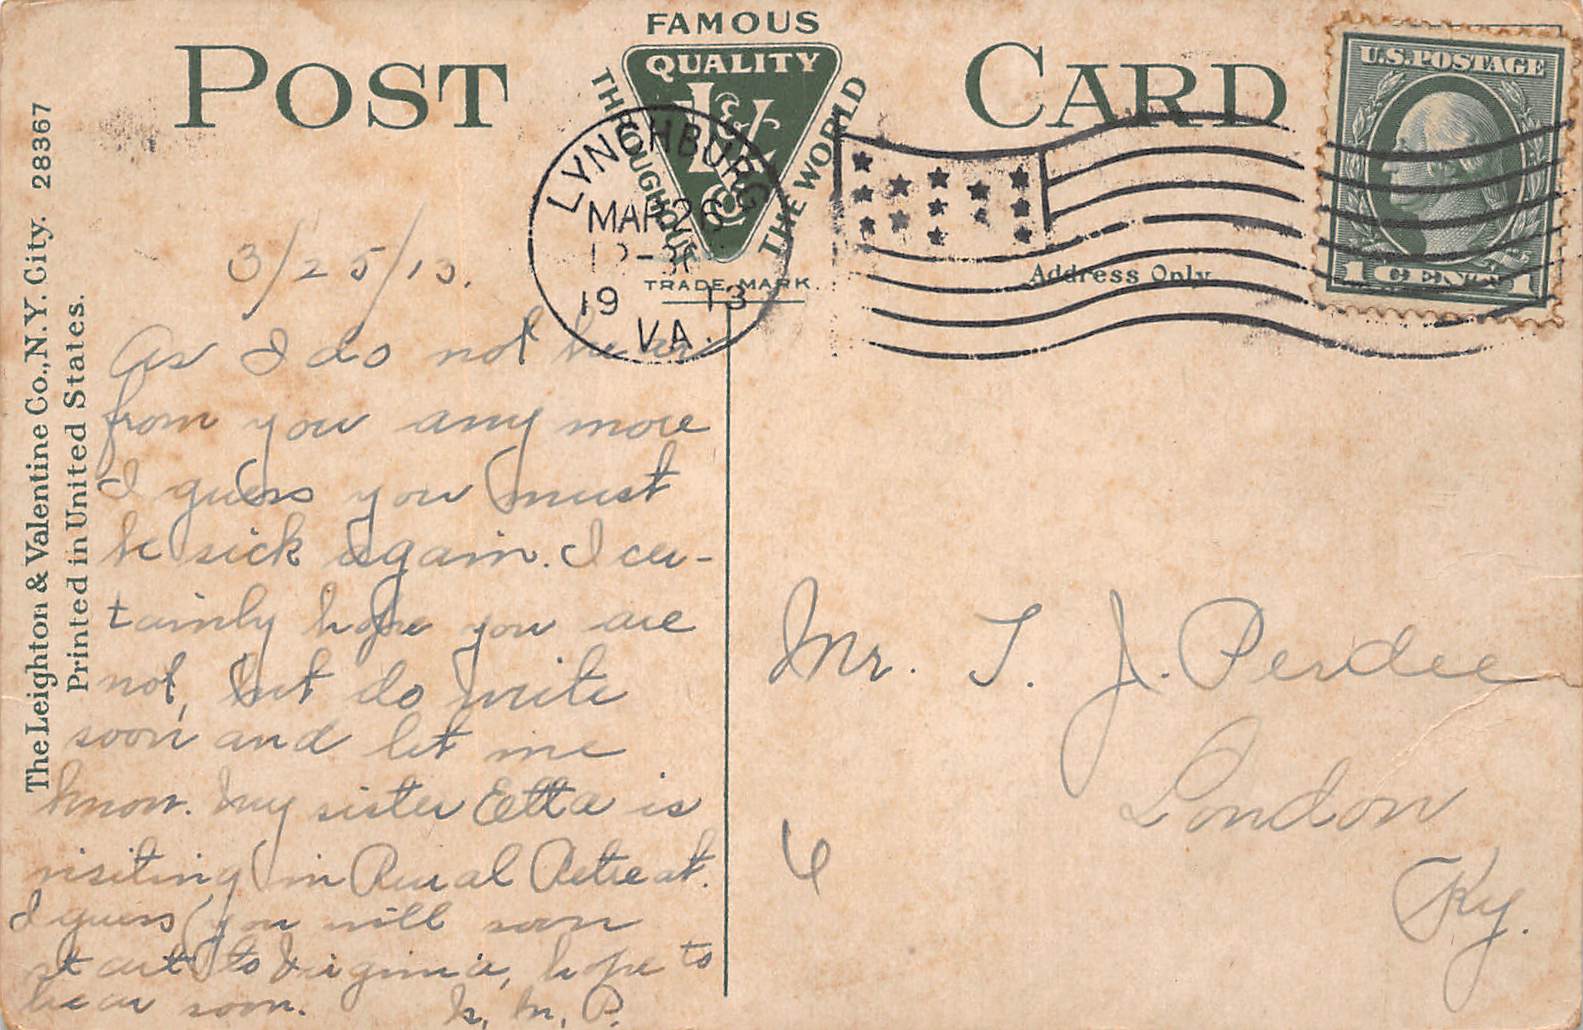 POST CARD
FAMOUS
QUALITY
L&V
Co
THROUGHOUT
THE WORLD
TRADE MARK.
LYNCHBURG
MAR 26
19 13
VA.
Address Only
U.S. POSTAGE
1 CENT 1
The Leighton & Valentine Co., N.Y. City. 28367
Printed in United States.
3/25/13.
As I do not hear
from you any more
I guess you must
be sick again. I cer-
tainly hope you are
not, but do write
soon and let me
know. My sister Etta is
visiting in Rural Retreat.
I guess you will soon
start to Virginia, hope to
hear soon. M. P.
Mr. T. J. Perdee
London
Ky.
6